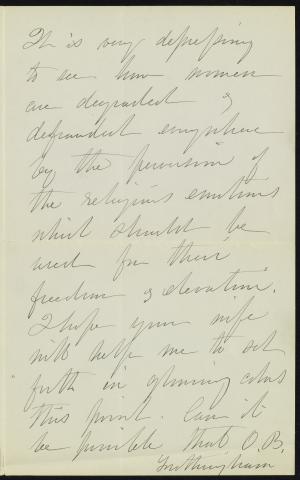 It is very depressing
to see how women
are degraded &
defrauded everywhere
by the perversion of
the religious emotions
which should be
used for their
freedom & elevation.
I hope your wife
will help me to set
forth in glowing colors
this point. Can it
be possible that O.B.
Frothingham